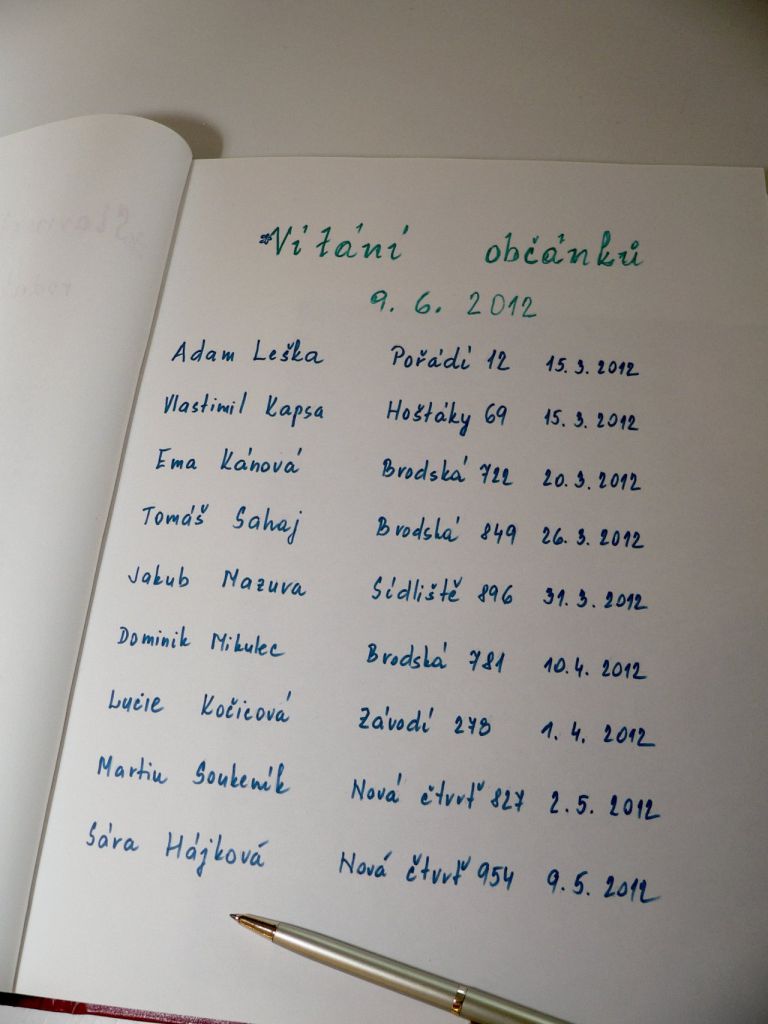 Vítání občánků
9. 6. 2012
Adam Leška Pořádí 12 15. 3. 2012
Vlastimil Kapsa Hošťáky 69 15. 3. 2012
Ema Kánová Brodská 722 20. 3. 2012
Tomáš Sahaj Brodská 849 26. 3. 2012
Jakub Mazura Sídliště 896 31. 3. 2012
Dominik Mikulec Brodská 781 10. 4. 2012
Lucie Kočicová Závodí 278 1. 4. 2012
Martin Soukeník Nová čtvrť 827 2. 5. 2012
Sára Hájková Nová čtvrť 954 9. 5. 2012